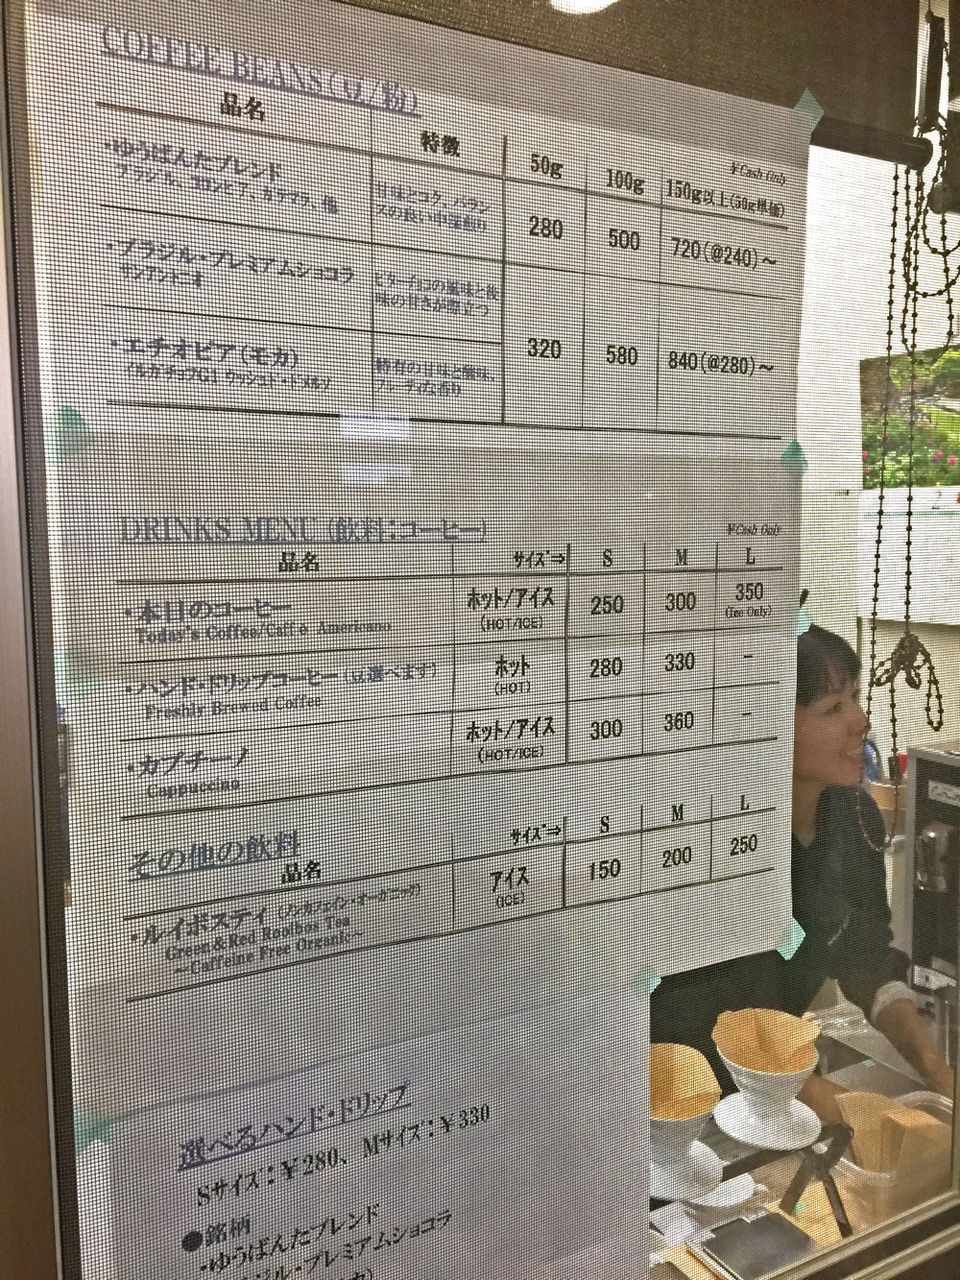 COFFEE BEANS（豆/粉）
品名 特徴 50g 100g 150g以上（50g単価）
¥Cash Only
・ゆうばんたブレンド
ブラジル、コロンビア、ガテマラ、他
甘味とコク、バラン
スの良い中深煎り
280 500 720(@240)～
・ブラジル・プレミアムショコラ
サンアントニオ
ビターチョコの風味と後
味の甘さが際立つ
・エチオピア（モカ）
イルガチェフG1
特有の甘味と酸味、
フルーティな香り
320 580 840(@280)～
DRINKS MENU（飲料：コーヒー）
¥Cash Only
品名 サイズ⇒ S M L
・本日のコーヒー
Today's Coffee/Caffè Americano
ホット/アイス
(HOT/ICE)
250 300 350
(Ice Only)
・ハンド・ドリップコーヒー（豆選べます）
Freshly Brewed Coffee
ホット
(HOT)
280 330 －
・カプチーノ
Cappuccino
ホット/アイス
(HOT/ICE)
300 360 －
その他の飲料
品名 サイズ⇒ S M L
・ルイボスティ（ノンカフェイン・オーガニック）
Green&Red Rooibos Tea
～Caffeine Free Organic～
アイス
(ICE)
150 200 250
選べるハンド・ドリップ
Sサイズ：￥280、Mサイズ：￥330
●銘柄
・ゆうばんたブレンド
・ブラジル・プレミアムショコラ